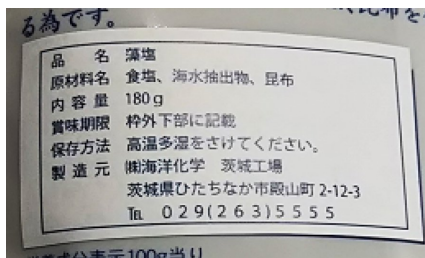 る為です。
昆布を
品名 藻塩
原材料名 食塩、海水抽出物、昆布
内容量 180g
賞味期限 枠外下部に記載
保存方法 高温多湿をさけてください。
製造元 ㈱海洋化学 茨城工場
茨城県ひたちなか市殿山町2-12-3
℡ 029(263)5555
100g当り